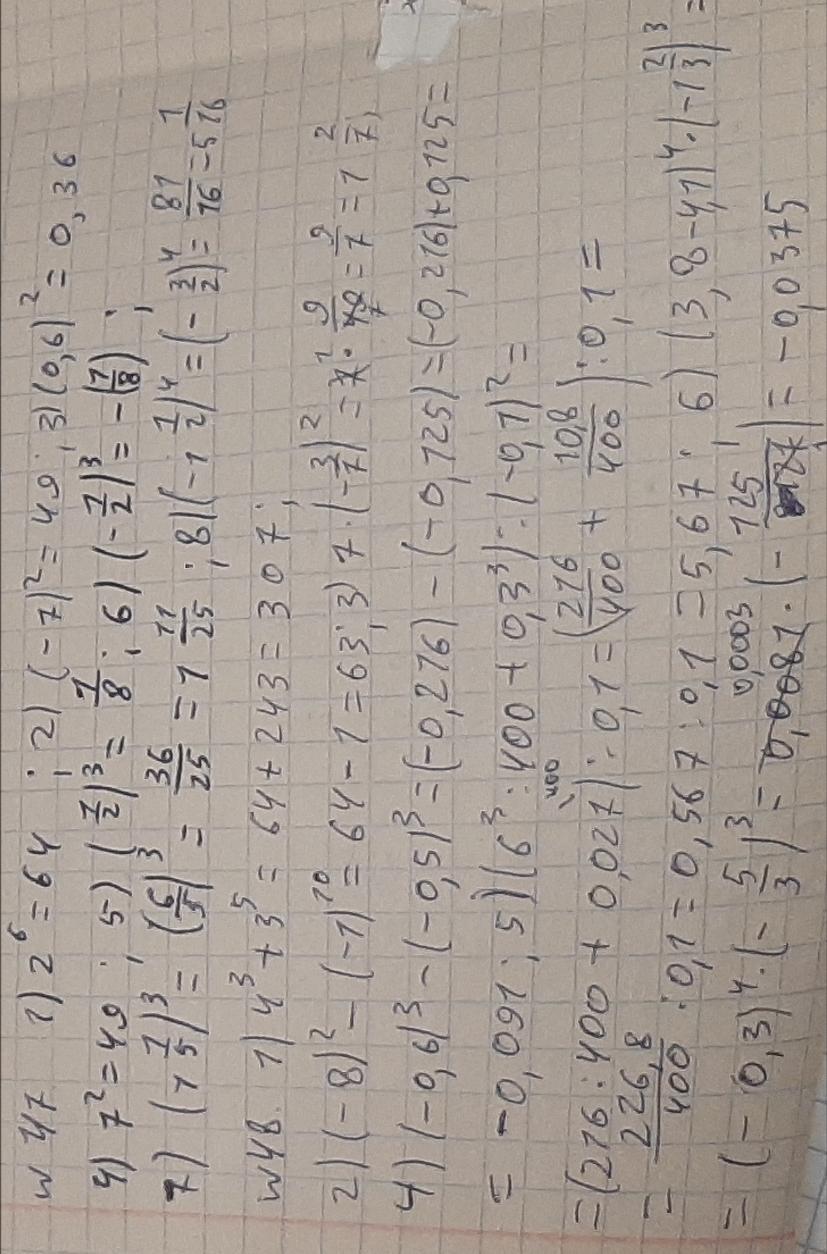 №47 1) 2⁶=64 ; 2) (-7)²=49 ; 3) (0,6)²=0,36
4) 7²=49 ; 5) (1/2)³=1/8 ; 6) (-1/2)³=-(1/8) ;
7) (1 1/5)³=(6/5)³=36/25=1 11/25 ; 8) (-1 1/2)⁴=(-3/2)⁴=81/16=5 1/16
№48. 1) 4³+3⁵=64+243=307 ;
2) (-8)²-(-1)¹⁰=64-1=63 ; 3) 7·(-3/7)²=7·9/49=9/7=1 2/7 ;
4) (-0,6)³-(-0,5)³=(-0,216)-(-0,125)=(-0,216)+0,125=
=-0,091 ; 5) (6³:400+0,3³):(-0,1)²=
=(216:400+0,027):0,1=(216/400+10,8/400):0,1=
=226,8/400:0,1=0,567:0,1=5,67 ; 6) (3,8-4,1)⁴·(-1 2/3)³=
=(-0,3)⁴·(-5/3)³=0,0081·(-125/27)=-0,0375